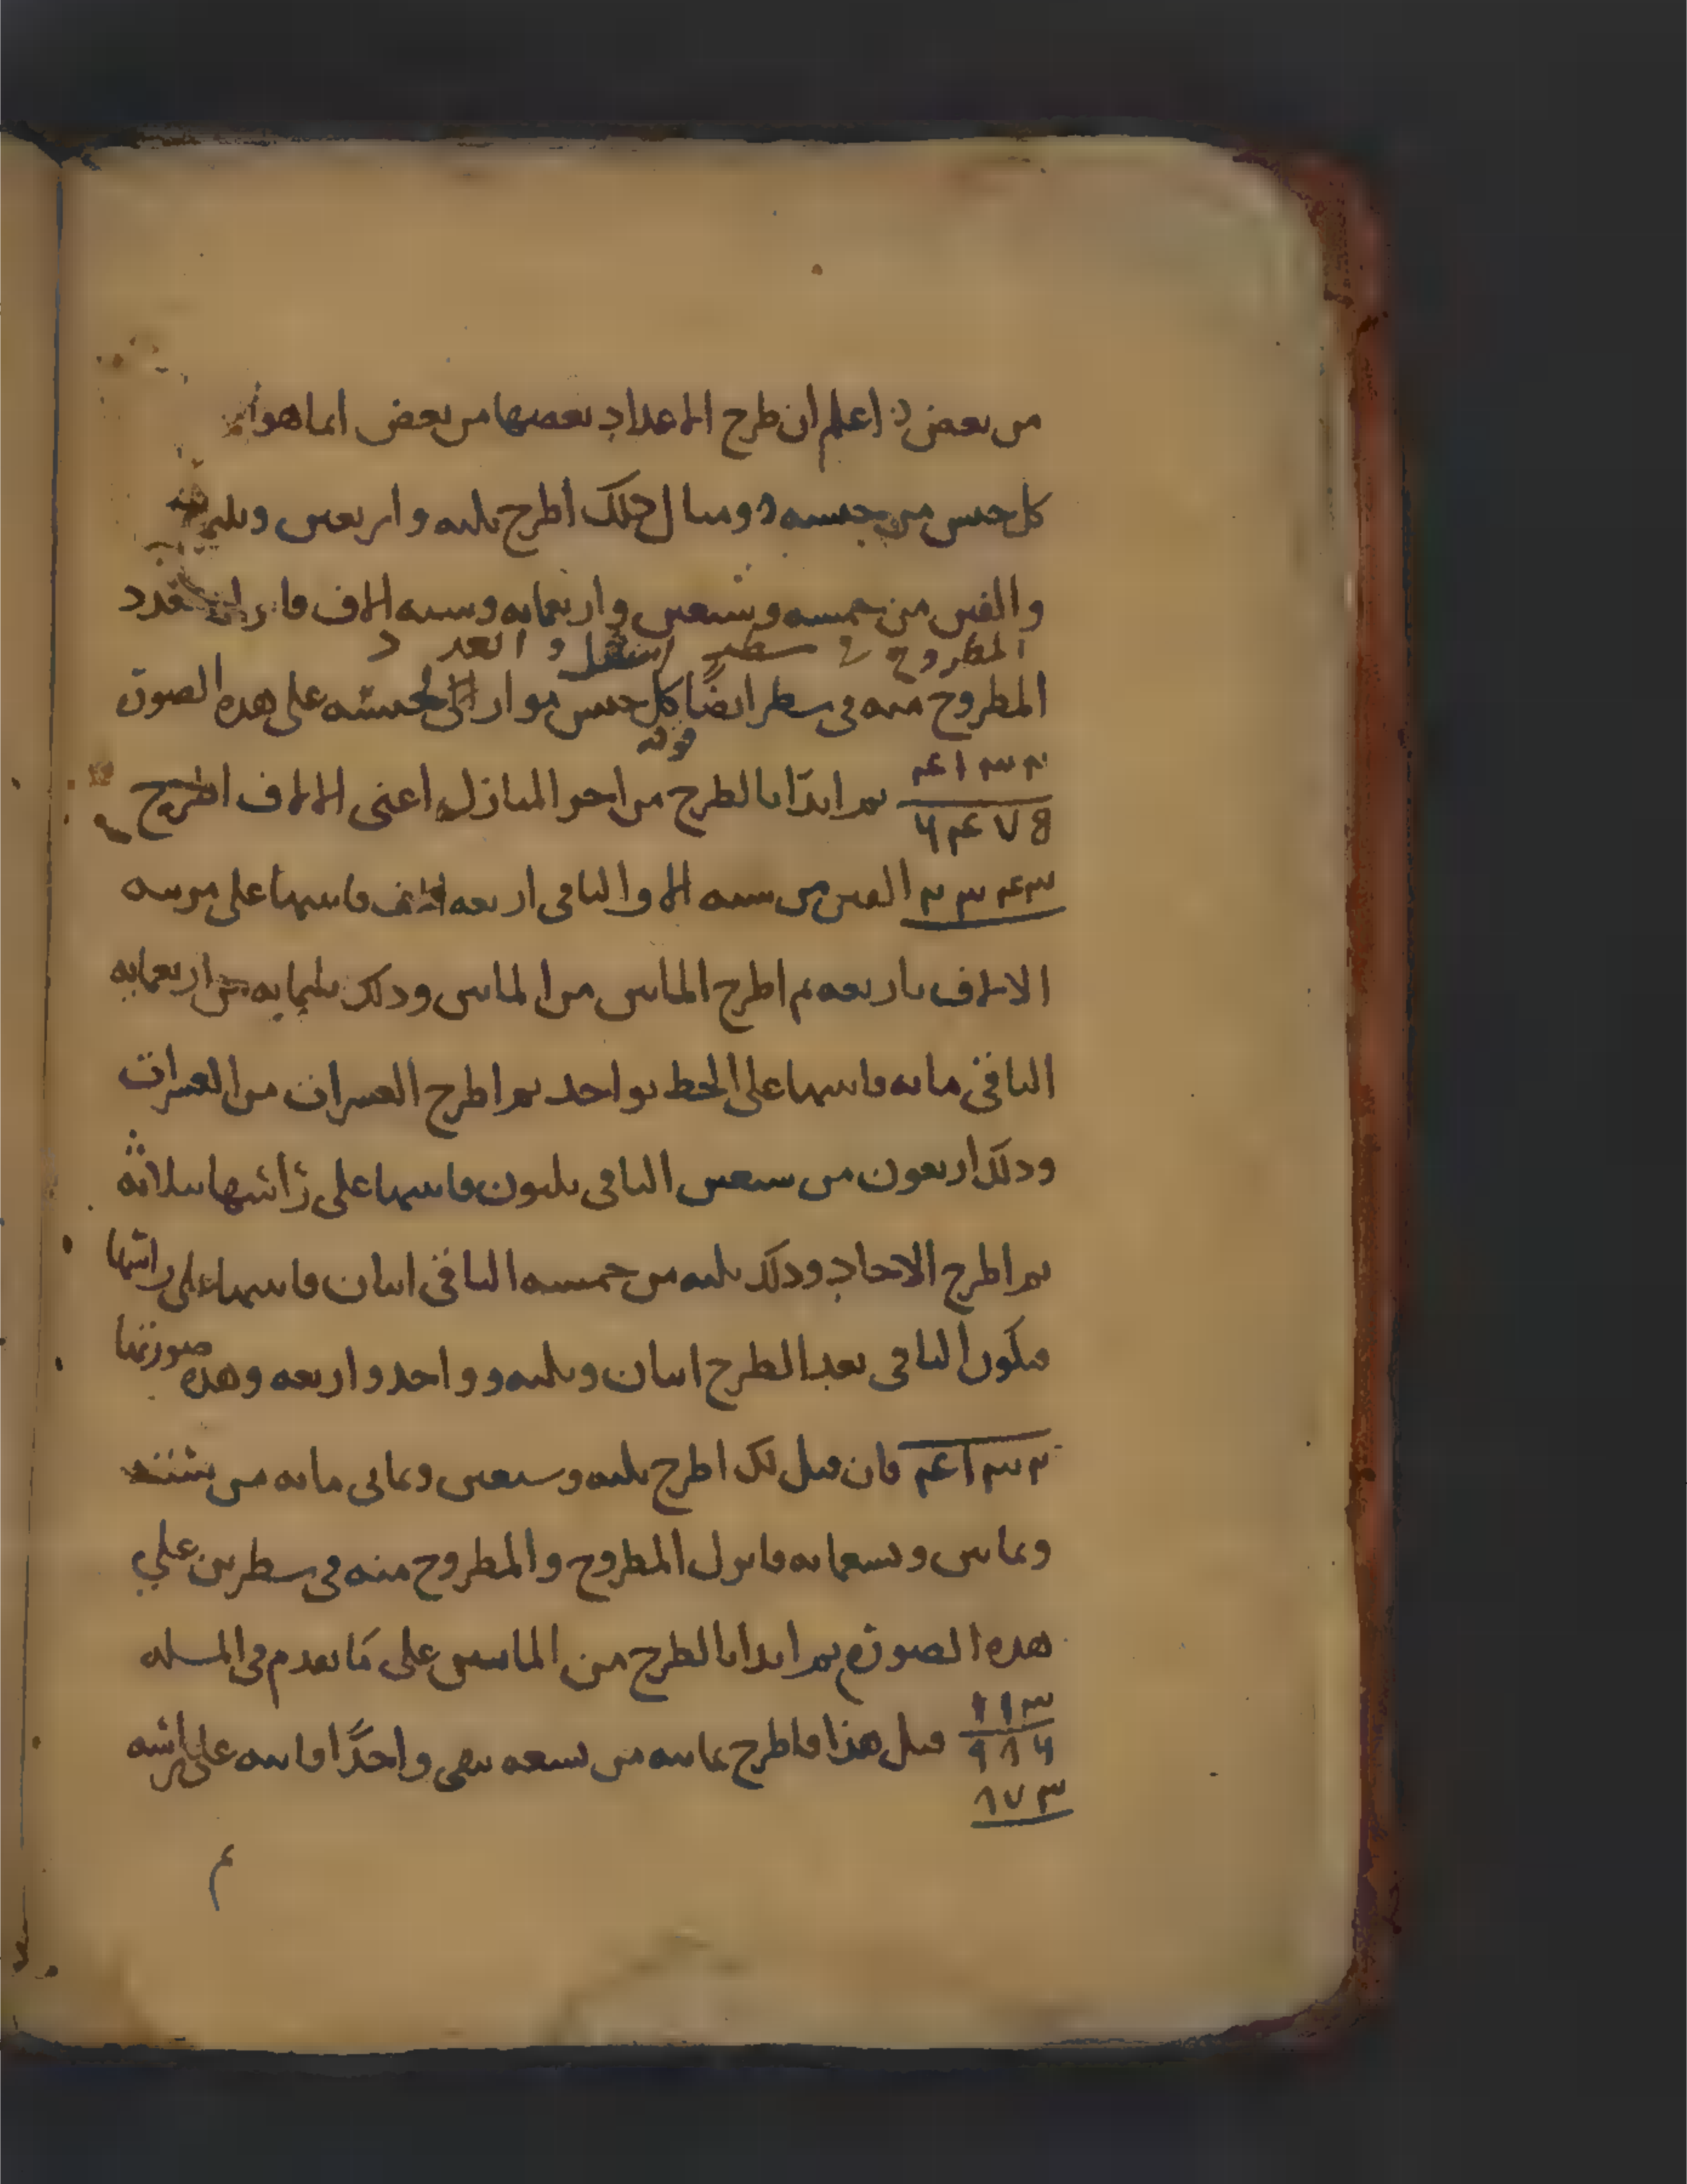 من بعض اعلم ان طرح الاعداد بعضها من بعض انما هو
كل جنس من جنسه ومثال ذلك اطرح ثلثه واربعين وثلثمايه
والفين من خمسه وسبعين واربعمايه وسته الاف فانزل عدد
المطروح في سطر اسفل والعدد
المطروح منه في سطر ايضًا كل جنس موازى لجنسه على هذه الصورة
فوقه
٢ ٣ ١ ٤
ثم ابدا بالطرح من اخر المنازل اعنى الالاف اطرح
٥ ٧ ٤ ٦
٣ ٤ ٣ ٢ الفين من سته الاف والباقى اربعه الاف فاثبتها على مرتبه
الالاف باربعه ثم اطرح المايين من المايين وذلك ثلثمايه من اربعمايه
الباقى مايه فاثبتها على الخط بواحد ثم اطرح العشرات من العشرات
وذلك اربعون من سبعين الباقى ثلثون فاثبتها على راسها بثلاثه
ثم اطرح الاحاد وذلك ثلثه من خمسه الباقى اثنان فاثبتها على راسها
فيكون الباقى بعد الطرح اثنان وثلثه وواحد واربعه وهذه صورتها
٢ ٣ ١ ٤ فان قيل لك اطرح ثلثه وسبعين وثمانى مايه من سته
وثمانين وتسعمايه فانزل المطروح والمطروح منه في سطرين علي
هذه الصورة ثم ابدا بالطرح من المايين على ما تقدم في المسله
٣ ١ ١
قبل هذا فاطرح ثمانيه من تسعه يبقى واحدًا فاثبته على راسه
٦ ٨ ٩
٣ ٧ ٨